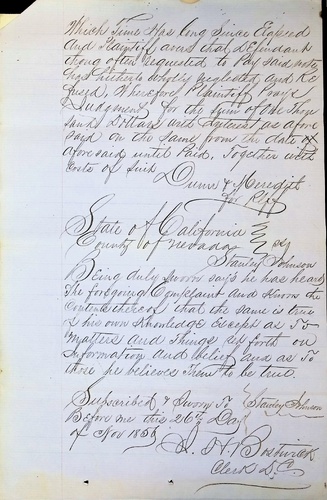 Which Time Has long Since Elapsed
And Plaintiff avers that Defendant
though often requested to Pay said note
has hitherto wholly neglected and Re
fused, Wherefore Plaintiff Prays
Judgment for the Sum of One Thou
sand Dollars with Interest as afore
said on the same from the date
aforesaid until Paid, Together with
Costs of Suit
Dunn & Meredith
for Plff
State of California
County of Nevada } ss
Stanley Johnson
Being duly Sworn says he has heard
The foregoing Complaint And Know the
Contents thereof that the same is true
of his own Knowledge Except as To
Matters and Things set forth on
Information and Belief and as To
those he believes Them to be true.
Subscribed & Sworn To } Stanley Johnson
Before me this 26th Day
of Nov 1856
Bostwick
Clerk D.C.